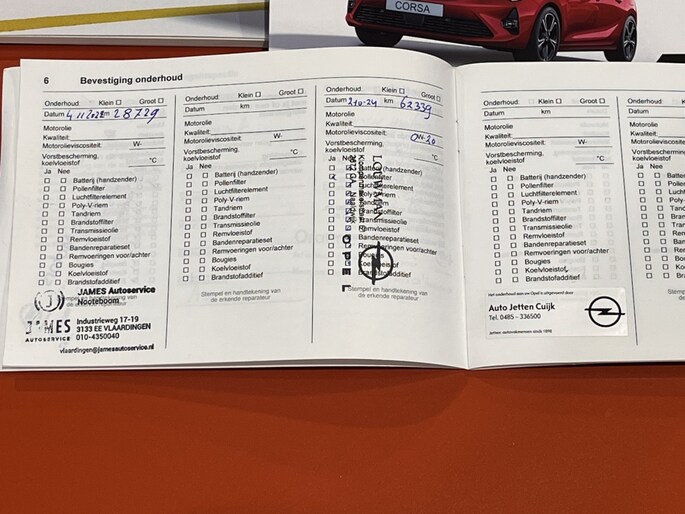 CORSA
6 Bevestiging onderhoud
Onderhoud: Klein ☐ Groot ☐
Datum 4 11 2022 km 28729
Motorolie
Kwaliteit:
Motorolieviscositeit: W-
Vorstbescherming,
koelvloeistof °C
Ja Nee
☐ ☐ Batterij (handzender)
☐ ☐ Pollenfilter
☐ ☐ Luchtfilterelement
☐ ☐ Poly-V-riem
☐ ☐ Tandriem
☐ ☐ Brandstoffilter
☐ ☐ Transmissieolie
☐ ☐ Remvloeistof
☐ ☐ Bandenreparatieset
☐ ☐ Remvoeringen voor/achter
☐ ☐ Bougies
☐ ☐ Koelvloeistof
☐ ☐ Brandstofadditief
JAMES Autoservice
Nooteboom
JAMES
AUTOSERVICE
Industrieweg 17-19
3133 EE VLAARDINGEN
010-4350040
vlaardingen@jamesautoservice.nl
Onderhoud: Klein ☐ Groot ☐
Datum km
Motorolie
Kwaliteit:
Motorolieviscositeit: W-
Vorstbescherming,
koelvloeistof °C
Ja Nee
☐ ☐ Batterij (handzender)
☐ ☐ Pollenfilter
☐ ☐ Luchtfilterelement
☐ ☐ Poly-V-riem
☐ ☐ Tandriem
☐ ☐ Brandstoffilter
☐ ☐ Transmissieolie
☐ ☐ Remvloeistof
☐ ☐ Bandenreparatieset
☐ ☐ Remvoeringen voor/achter
☐ ☐ Bougies
☐ ☐ Koelvloeistof
☐ ☐ Brandstofadditief
Stempel en handtekening van
de erkende reparateur
Onderhoud: Klein ☐ Groot ☐
Datum 2-10-24 km 62339
Motorolie
Kwaliteit:
Motorolieviscositeit: 0W-20
Vorstbescherming,
koelvloeistof °C
Ja Nee
Batterij (handzender)
Pollenfilter
Luchtfilterelement
Poly-V-riem
Tandriem
Brandstoffilter
Transmissieolie
Remvloeistof
Bandenreparatieset
Remvoeringen voor/achter
Bougies
Koelvloeistof
Brandstofadditief
Opel
Stempel en handtekening van
de erkende reparateur
Onderhoud: Klein ☐ Groot ☐
Datum km
Motorolie
Kwaliteit:
Motorolieviscositeit: W-
Vorstbescherming,
koelvloeistof °C
Ja Nee
☐ ☐ Batterij (handzender)
☐ ☐ Pollenfilter
☐ ☐ Luchtfilterelement
☐ ☐ Poly-V-riem
☐ ☐ Tandriem
☐ ☐ Brandstoffilter
☐ ☐ Transmissieolie
☐ ☐ Remvloeistof
☐ ☐ Bandenreparatieset
☐ ☐ Remvoeringen voor/achter
☐ ☐ Bougies
☐ ☐ Koelvloeistof
☐ ☐ Brandstofadditief
Het onderhoud aan uw Opel is uitgevoerd door:
Auto Jetten Cuijk
Tel. 0485 - 336500
Jetten: motorrijdsterren sinds 1896
Onderhoud:
Datum
Motorolie
Kwaliteit:
Motorolieviscositeit
Vorstbescherming,
koelvloeistof
Ja Nee